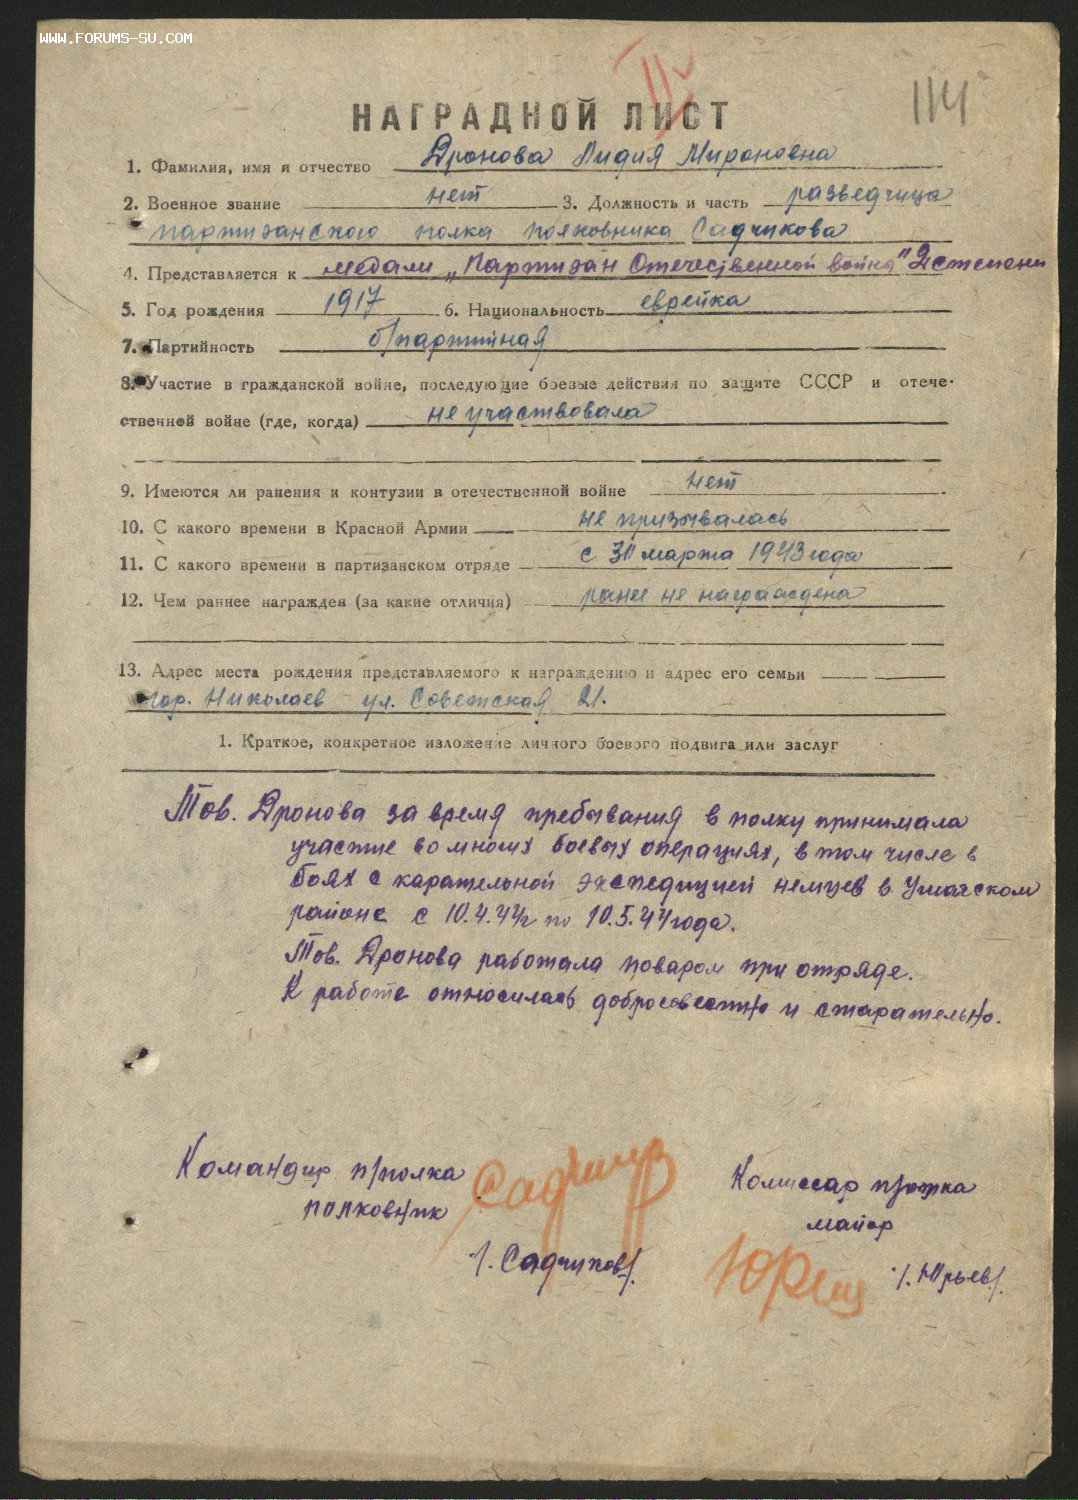 WWW.FORUMS-SU.COM
114
НАГРАДНОЙ ЛИСТ
1. Фамилия, имя и отчество Дронова Лидия Мироновна
2. Военное звание нет 3. Должность и часть разведчица
партизанского полка полковника Садчикова
4. Представляется к медали „Партизан Отечественной война" 2 степени
5. Год рождения 1917 6. Национальность еврейка
7. Партийность б/партийная
8. Участие в гражданской войне, последующие боевые действия по защите СССР и отече-
ственной войне (где, когда) не участвовала
9. Имеются ли ранения и контузии в отечественной войне нет
10. С какого времени в Красной Армии не призывалась
11. С какого времени в партизанском отряде с 30 марта 1943 года
12. Чем раннее награжден (за какие отличия) ранее не награждена
13. Адрес места рождения представляемого к награждению и адрес его семьи
гор. Николаев ул. Советская 21.
1. Краткое, конкретное изложение личного боевого подвига или заслуг
Тов. Дронова за время пребывания в полку принимала
участие во многих боевых операциях, в том числе в
боях с карательной экспедицией немцев в Ушачском
районе с 10.4.44г по 10.5.44 года.
Тов. Дронова работала поваром при отряде.
К работе относилась добросовестно и старательно.
Командир п/полка Комиссар п/полка
полковник майор
/. Садчиков/. /. Юрьев/.